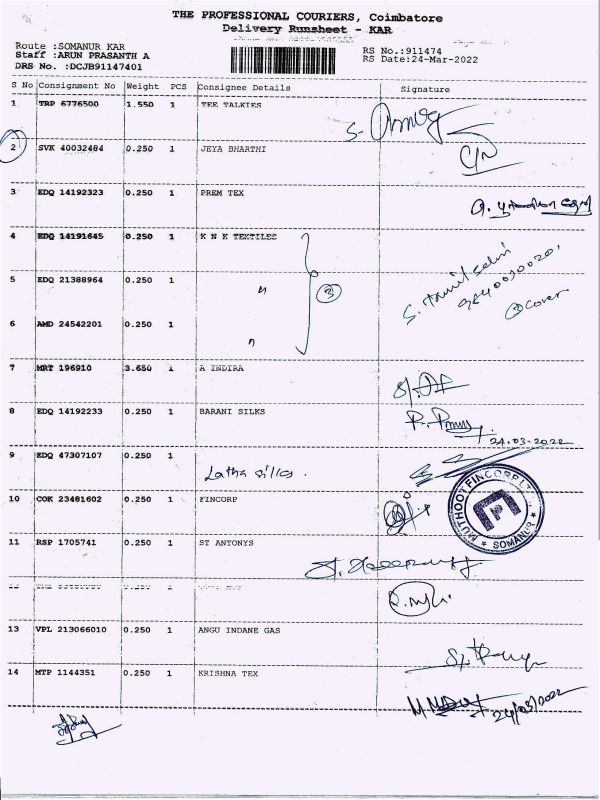 THE PROFESSIONAL COURIERS, Coimbatore
Delivery Runsheet - KAR
Route :SOMANUR KAR
Staff :ARUN PRASANTH A
DRS No. :DCJB91147401
RS No.:911474
RS Date:24-Mar-2022
S No Consignment No Weight PCS Consignee Details Signature
1 TRP 6776500 1.550 1 TEE TALKIES
2 SVK 40032484 0.250 1 JEYA BHARTHI
3 EDQ 14192323 0.250 1 PREM TEX
4 EDQ 14191645 0.250 1 K N K TEXTILES
5 EDQ 21388964 0.250 1 " 3
S. Tamil selvi
3 cover
6 AMD 24542201 0.250 1 "
7 MRT 196910 3.650 1 A INDIRA
8 EDQ 14192233 0.250 1 BARANI SILKS
24.03.2022
9 EDQ 47307107 0.250 1 Latha silks.
10 COK 23481602 0.250 1 FINCORP
MUTHOOT FINCORP LT
SOMANUR
11 RSP 1705741 0.250 1 ST ANTONYS
13 VPL 213066010 0.250 1 ANGU INDANE GAS
14 MTP 1144351 0.250 1 KRISHNA TEX
24/03/2022